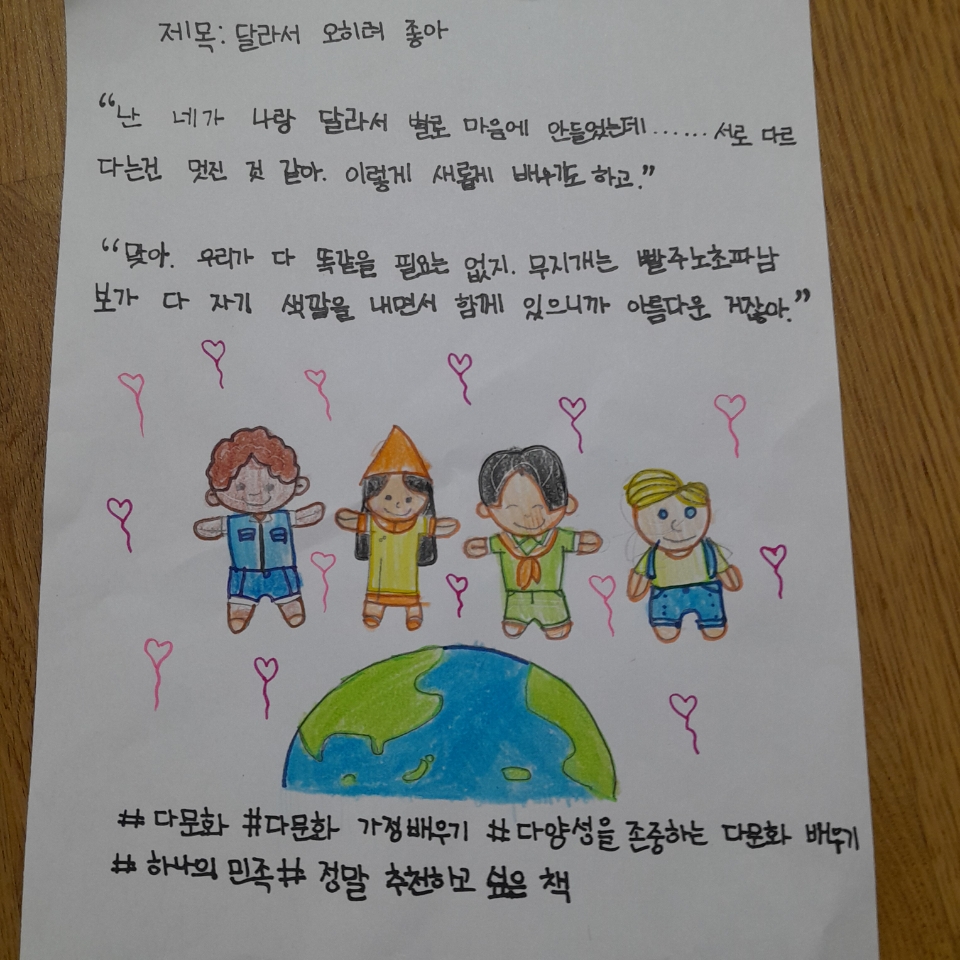 제목: 달라서 오히려 좋아
“난 네가 나랑 달라서 별로 마음에 안들었는데...... 서로 다르
다는건 멋진 것 같아. 이렇게 새롭게 배우기도 하고.”
“맞아. 우리가 다 똑같을 필요는 없지. 무지개는 빨주노초파남
보가 다 자기 색깔을 내면서 함께 있으니까 아름다운 거잖아.”
# 다문화 #다문화 가정배우기 # 다양성을 존중하는 다문화 배우기
# 하나의 민족# 정말 추천하고 싶은 책